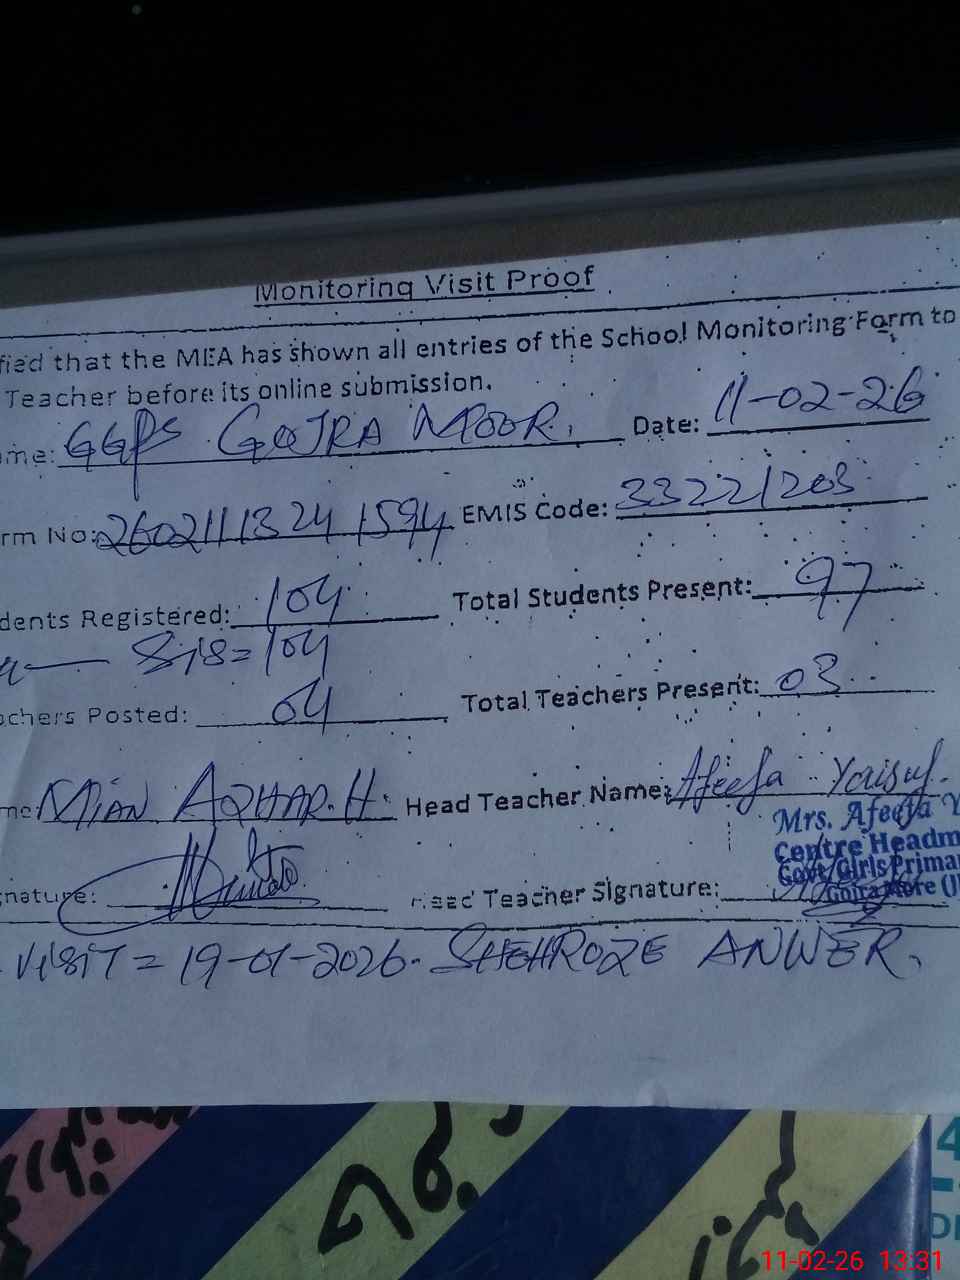 Monitoring Visit Proof
fied that the MEA has shown all entries of the School Monitoring Form to
Teacher before its online submission.
me: GGPS GOJRA MOOR. Date: 11-02-26
rm No: 2602111324 1594 EMIS Code: 33221203
dents Registered: 104 Total Students Present: 97
Sis=104
chers Posted: 04 Total Teachers Present: 03
me: MIAN AZHAR.H. Head Teacher Name: Afeefa Yousuf.
Mrs. Afeefa Y
Centre Headm
Govt/Girls Primar
nature: Head Teacher Signature:
Gojra More (J
VISIT = 19-01-2026. SHEHROZE ANWER.
4
11-02-26 13:31